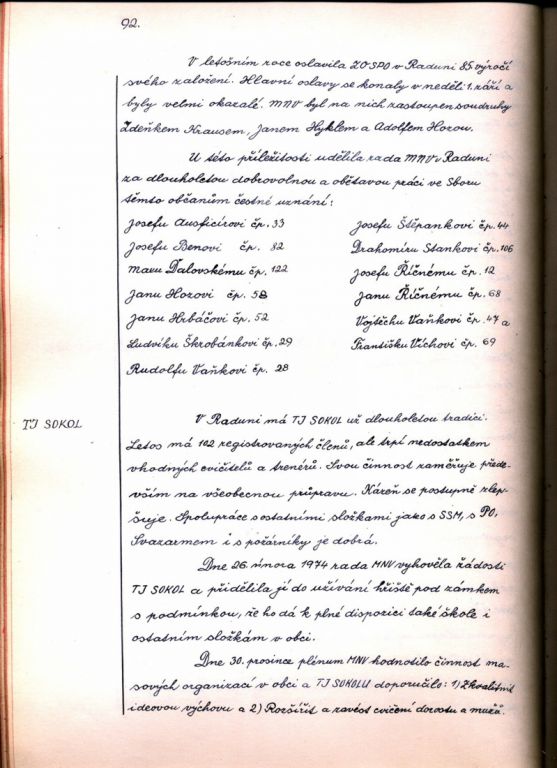 92.
V letošním roce oslavila ZO SPO v Raduni 85. výročí
svého založení. Hlavní oslavy se konaly v neděli 1. září a
byly velmi okazalé. MNV byl na nich zastoupen soudruhy
Zdeňkem Krausem, Janem Hyklem a Adolfem Horou.
U této příležitosti udělila rada MNV v Raduni
za dlouholetou dobrovolnou a obětavou práci ve Sboru
těmto občanům čestné uznání:
Josefu Ausficírovi čp. 33
Josefu Štěpankovi čp. 44
Josefu Benovi čp. 82
Drahomíru Stankovi čp. 106
Ďalovskému čp. 122
Josefu Říčnému čp. 12
Janu Hozovi čp. 58
Janu Říčnému čp. 68
Janu Hrbáčovi čp. 52
Vojtěchu Vaňkovi čp. 47 a
Ludviku Škrobánkovi čp. 29
Františku Víchovi čp. 69
Rudolfu Vaňkovi čp. 28
TJ SOKOL
V Raduni má TJ SOKOL už dlouholetou tradici.
Letos má 102 registrovaných členů, ale trpí nedostatkem
vhodných cvičitelů a trenérů. Svou činnost zaměřuje přede-
vším na všeobecnou průpravu. Kázeň se postupně zlep-
šuje. Spolupráce s ostatními složkami jako s SSM, s PO,
Svazarmem i s požárníky je dobrá.
Dne 26. února 1974 rada MNV vyhověla žádosti
TJ SOKOL a přidělila jí do užívání hřiště pod zámkem
s podmínkou, že ho dá k plné dispozici také škole i
ostatním složkám v obci.
Dne 30. prosince plénum MNV hodnotilo činnost ma-
sových organizací v obci a TJ SOKOLU doporučilo: 1) Zkvalitnit
ideovou výchovu a 2) Rozšířit a zavést cvičení dorostu a mužů.